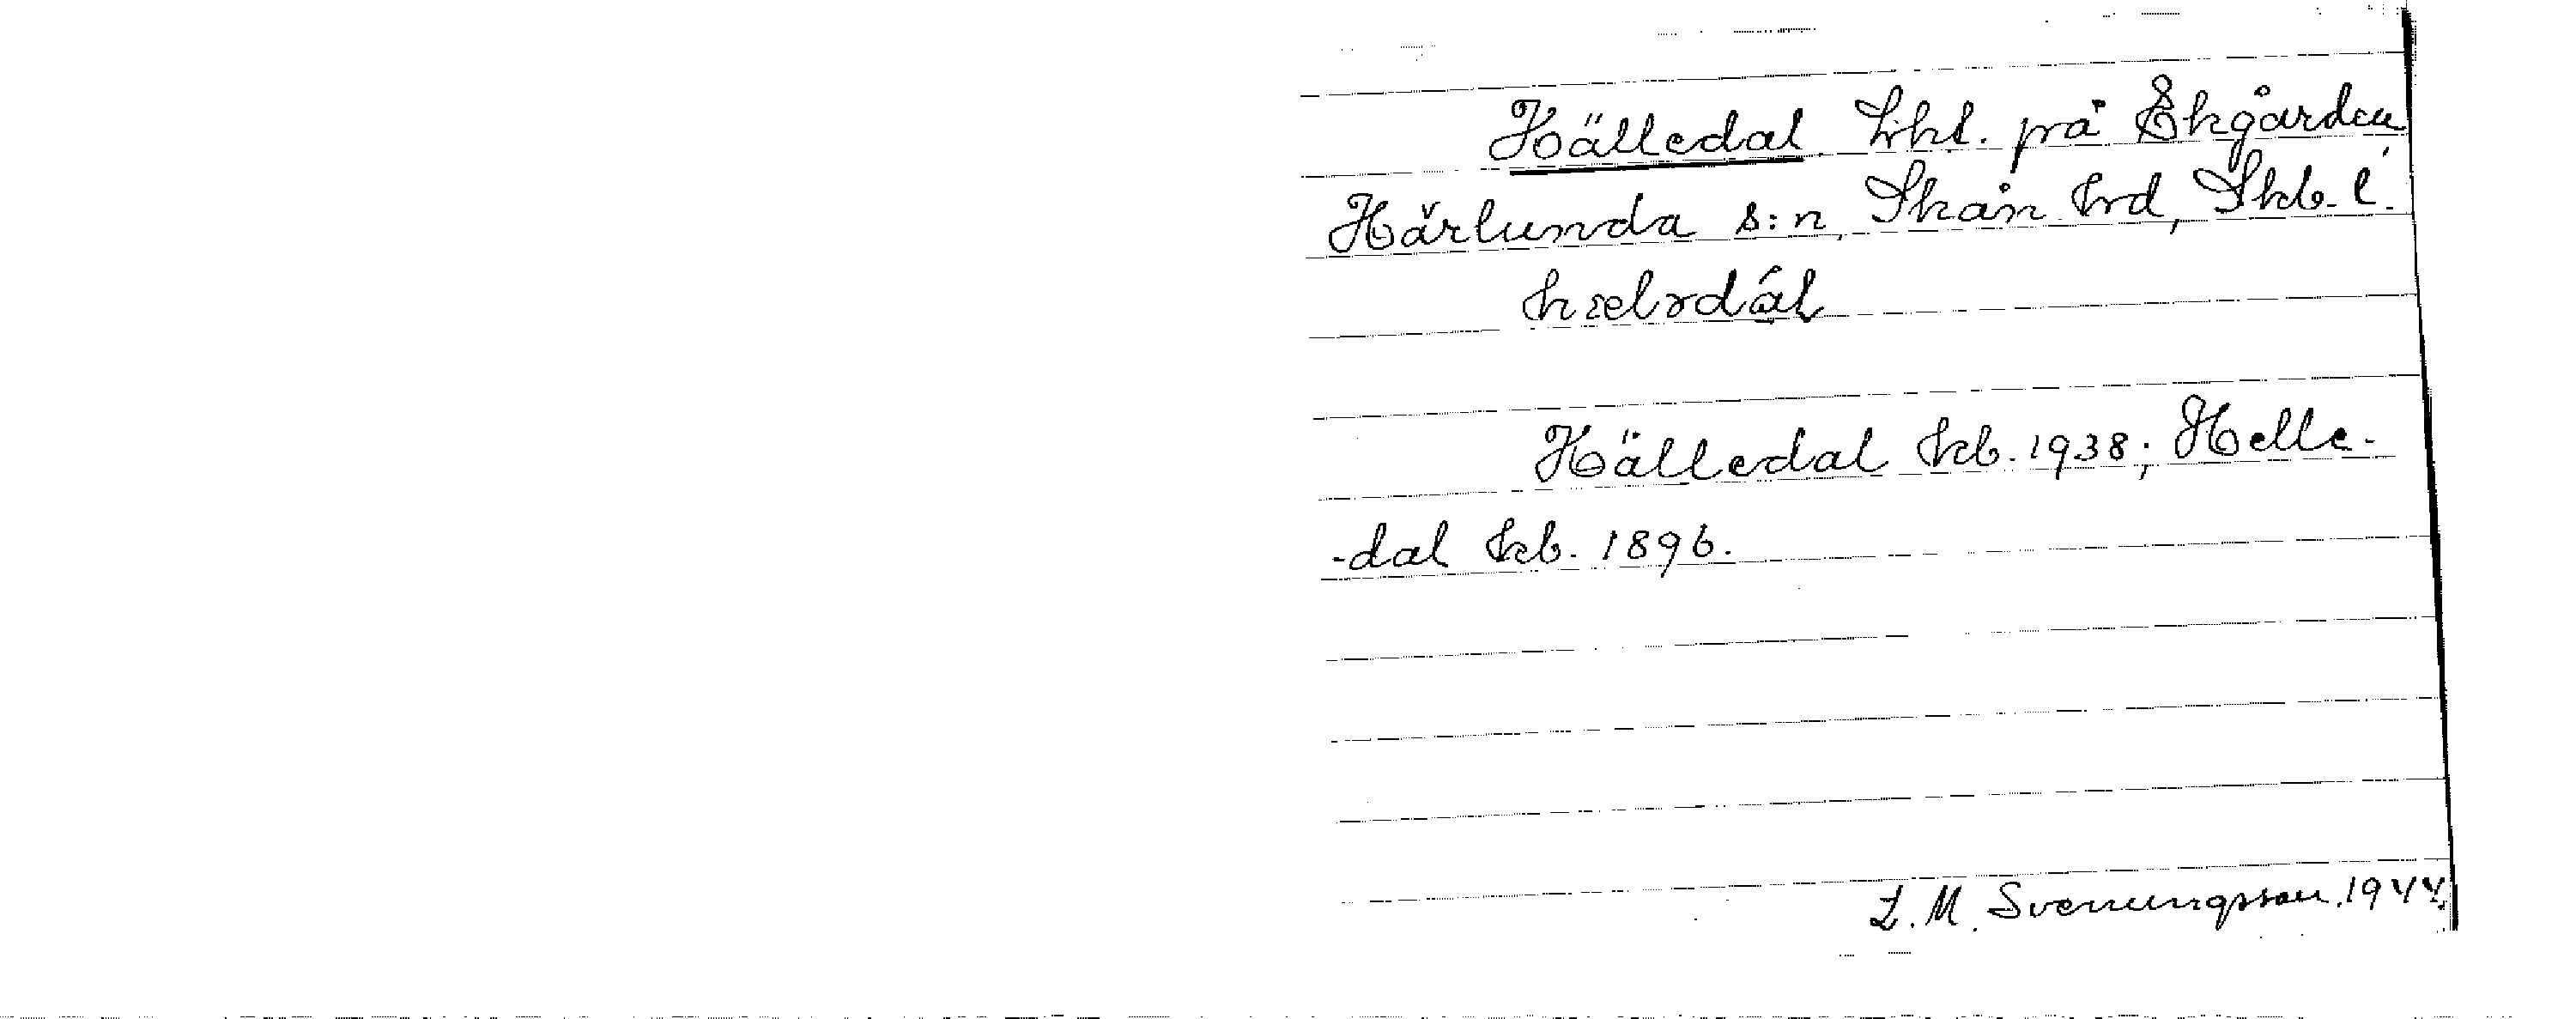 Hälledal. Lht. på Ekgården
Härlunda s:n, Skån. hrd, Skb. l.
hælrdál
Hälledal kb. 1938; Helle-
-dal kb. 1896.
L. M. Svenungsson. 1944.